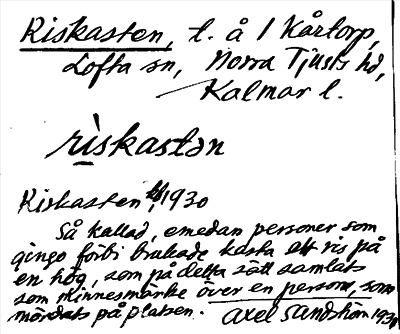 Riskasten, t. å 1 Kårtorp,
Lofta sn, Norra Tjusts hd,
Kalmar l.
riskastən
Riskasten 1930
Så kallad, emedan personer som
gingo förbi brukade kasta ett ris på
en hög, som på detta sätt samlats
som minnesmärke över en person, som
mördats på platsen. Axel Sandström 1930